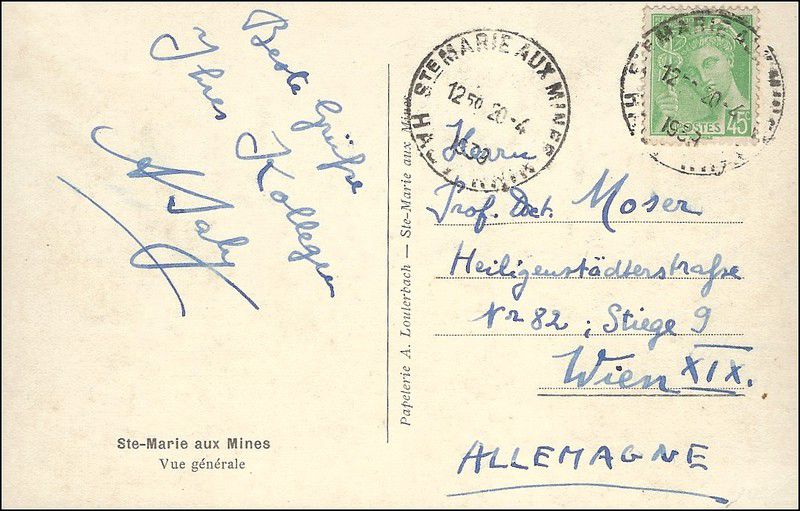 Beste Grüsse
Ihres Kollegen
Ste-Marie aux Mines
Vue générale
Papeterie A. Louterbach — Ste-Marie aux Mines
STE MARIE AUX MINES
1250 20-4
HAUT-RHIN
STE MARIE AUX
20-4
POSTES 45c
Herrn
Prof. Doct. Moser
Heiligenstädterstraße
Nr 82 ; Stiege 9
Wien XIX.
ALLEMAGNE